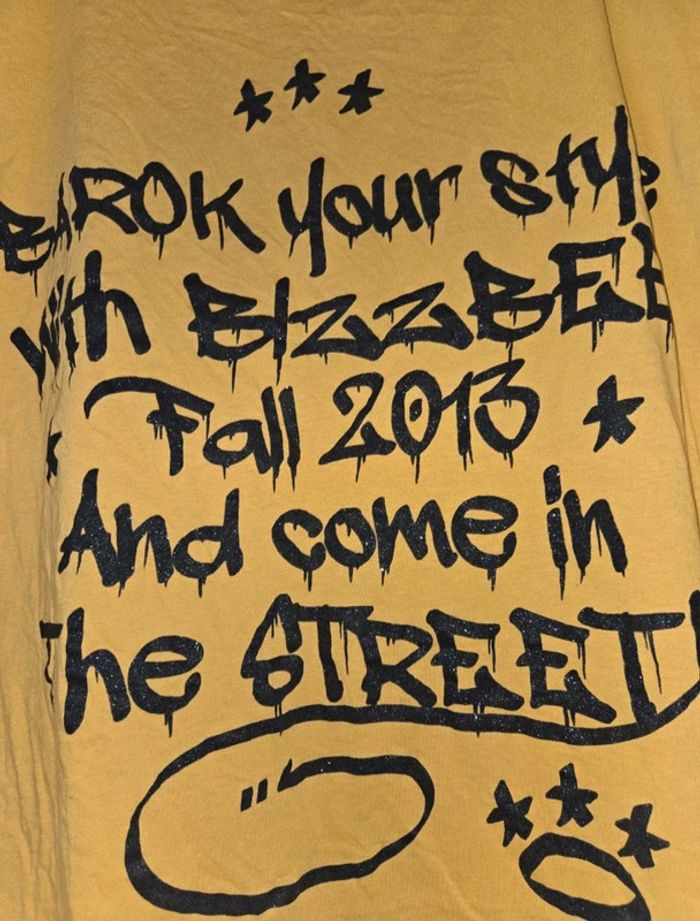 BAROK your style
with BIZZBEE
Fall 2013
And come in
the STREET